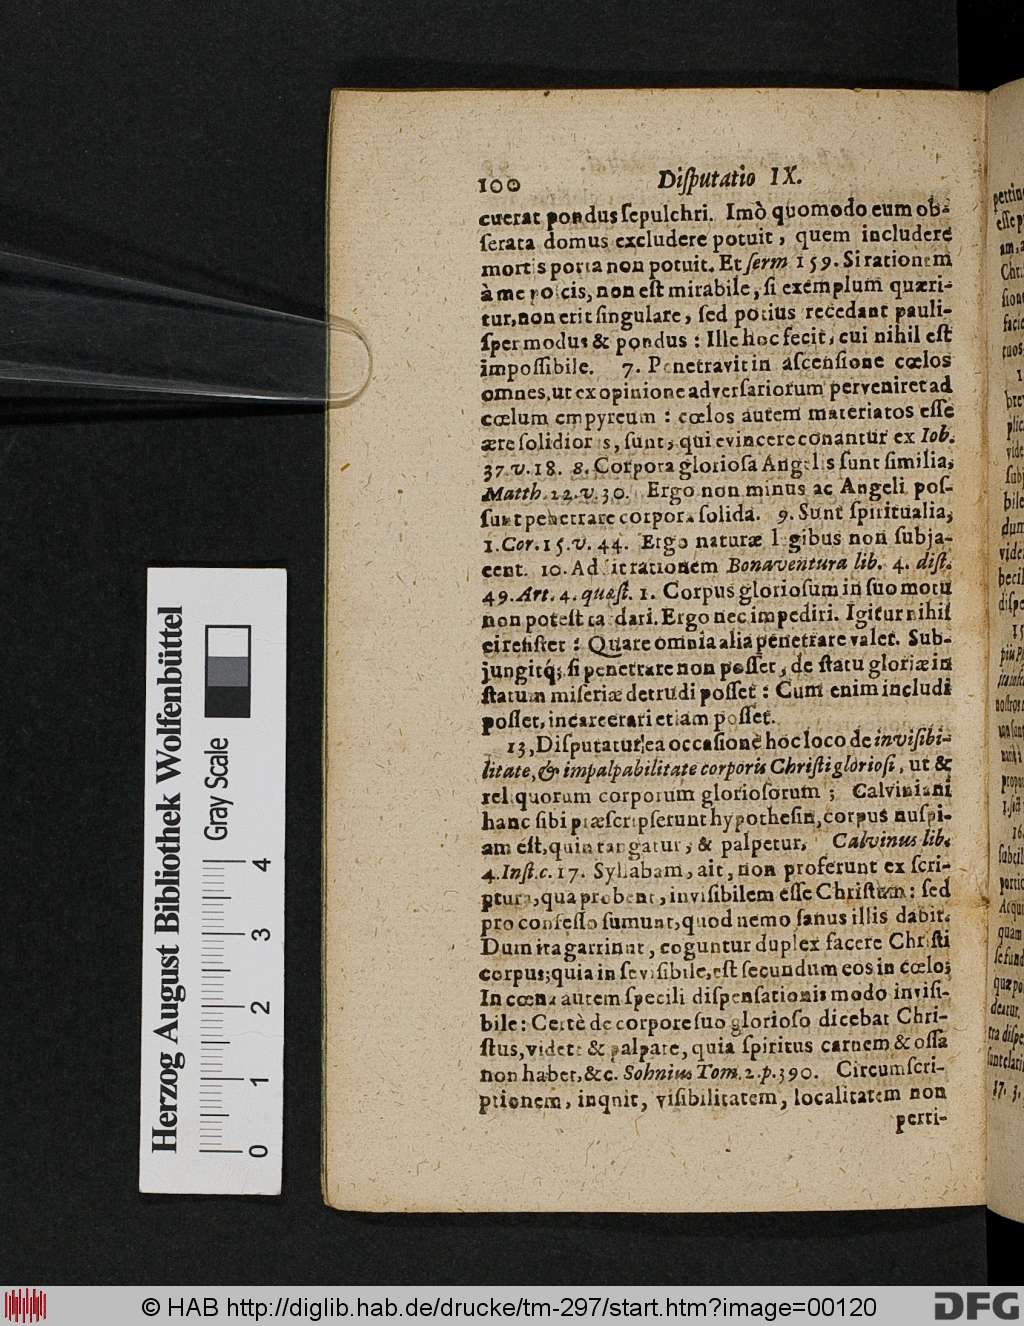 100 Disputatio IX.
cuerat pondus sepulchri. Imò quomodo eum ob-
serata domus excludere potuit, quem includere
mortis porta non potuit. Et serm 159. Si rationem
à me poscis, non est mirabile, si exemplum quæri-
tur, non erit singulare, sed potius recedant pauli-
sper modus & pondus: Ille hoc fecit, cui nihil est
impossibile. 7. Penetravit in ascensione cœlos
omnes, ut ex opinione adversariorum perveniret ad
cœlum empyreum: cœlos autem materiatos esse
ære solidiores, sunt, qui evincere conantur ex Iob.
37. v. 18. 8. Corpora gloriosa Angelis sunt similia,
Matth. 22. v. 30. Ergo non minus ac Angeli pos-
sunt penetrare corpora solida. 9. Sunt spiritualia,
1. Cor. 15. v. 44. Ergo naturæ legibus non subja-
cent. 10. Addit rationem Bonaventura lib. 4. dist.
49. Art. 4. quæst. 1. Corpus gloriosum in suo motu
non potest tardari. Ergo nec impediri. Igitur nihil
ei resistet: Quare omnia alia penetrare valet. Sub-
jungitq; si penetrare non posset, de statu gloriæ in
statum miseriæ detrudi posset: Cum enim includi
posset, incarcerari etiam posset.
13, Disputatur ea occasione hoc loco de invisibi-
litate, & impalpabilitate corporis Christi gloriosi, ut &
reliquorum corporum gloriosorum; Calviniani
hanc sibi præscripserunt hypothesin, corpus nuspi-
am est, quin tangatur, & palpetur. Calvinus lib.
4. Inst. c. 17. Syllabam, ait, non proferunt ex scri-
ptura, qua probent, invisibilem esse Christum: sed
pro confesso sumunt, quod nemo sanus illis dabit.
Dum ita garriunt, coguntur duplex facere Christi
corpus; quia in se visibile, est secundum eos in cœlo;
In cœna autem specili dispensationis modo invisi-
bile: Certè de corpore suo glorioso dicebat Chri-
stus, videte & palpate, quia spiritus carnem & ossa
non habet, &c. Sohnius Tom. 2. p. 390. Circumscri-
ptionem, inqnit, visibilitatem, localitatem non
perti-
Herzog August Bibliothek Wolfenbüttel
Gray Scale
0 1 2 3 4
© HAB http://diglib.hab.de/drucke/tm-297/start.htm?image=00120
DFG